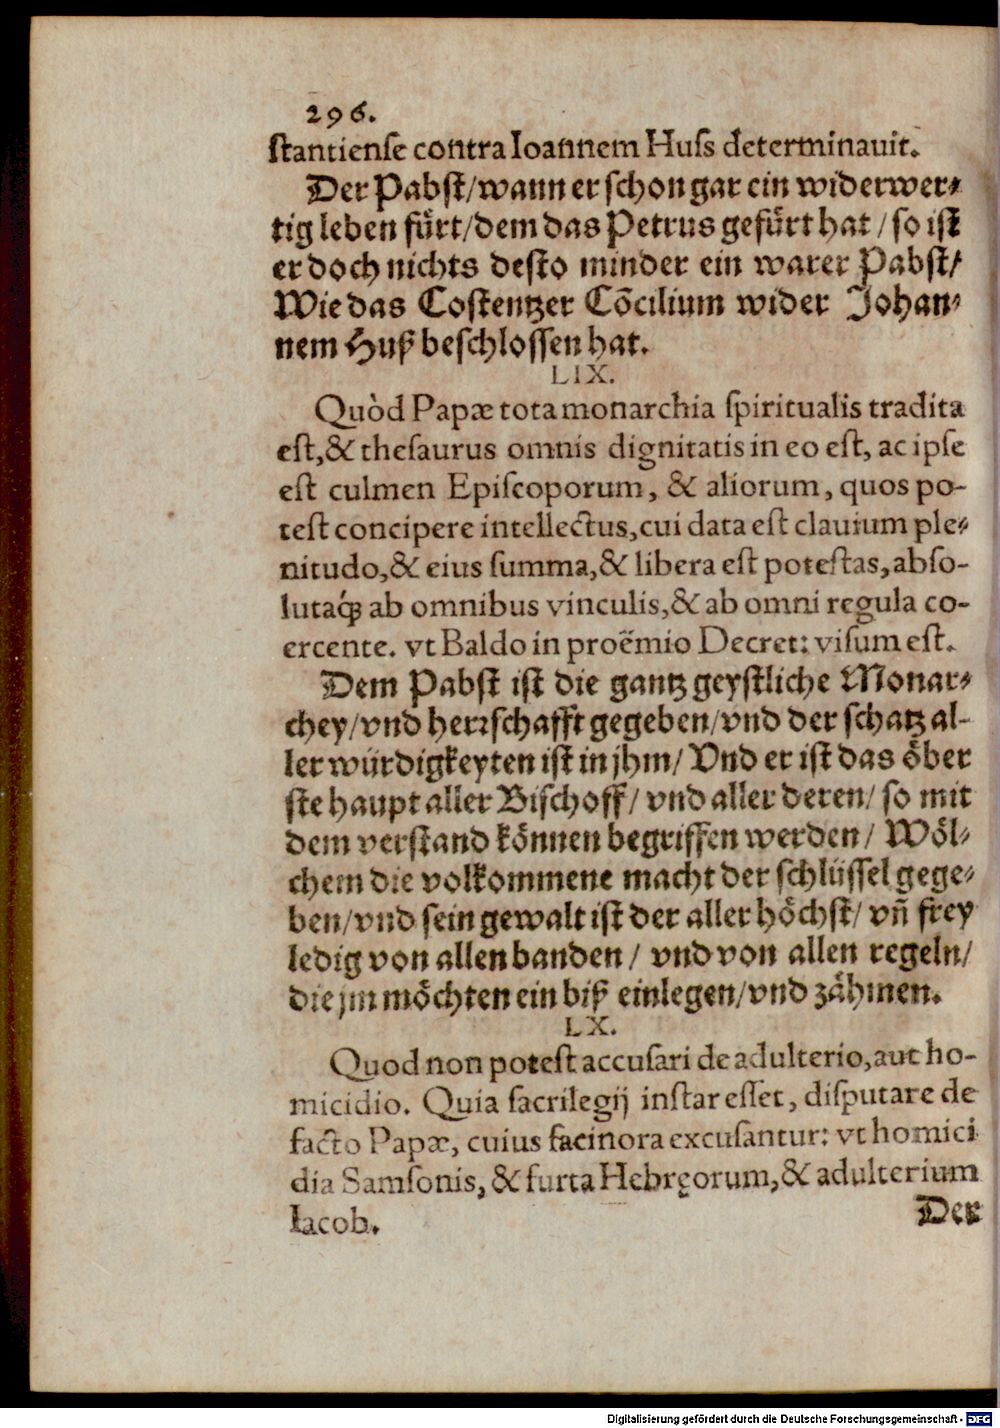 296.
ſtantienſe contra Ioannem Huſs determinauit.
Der Pabſt/wann er ſchon gar ein widerwer⸗
tig leben fuͤrt/dem das Petrus gefuͤrt hat/ſo iſt
er doch nichts deſto minder ein warer Pabſt/
Wie das Coſtentzer Cõcilium wider Johan⸗
nem Huß beſchloſſen hat.
LIX.
Quòd Papæ tota monarchia ſpiritualis tradita
eſt,& theſaurus omnis dignitatis in eo eſt, ac ipſe
eſt culmen Epiſcoporum, & aliorum, quos po-
teſt concipere intellectus,cui data eſt clauium ple⸗
nitudo,& eius ſumma,& libera eſt poteſtas,abſo-
lutaq́; ab omnibus vinculis,& ab omni regula co-
ercente. vt Baldo in proëmio Decret: viſum eſt.
Dem Pabſt iſt die gantz geyſtliche Monar⸗
chey/vnd herrſchafft gegeben/vnd der ſchatz al-
ler würdigkeyten iſt in jhm/ Vnd er iſt das oͤber
ſte haupt aller Biſchoff/ vnd aller deren/ ſo mit
dem verſtand koͤnnen begriffen werden/ Woͤl⸗
chem die volkommene macht der ſchlüſſel gege⸗
ben/vnd ſein gewalt iſt der aller hoͤchſt/ vñ frey
ledig von allen banden/ vnd von allen regeln/
die jm moͤchten ein biß einlegen/vnd zaͤhmen.
LX.
Quod non poteſt accuſari de adulterio,aut ho-
micidio. Quia ſacrilegij inſtar eſſet, diſputare de
facto Papæ, cuius facinora excuſantur: vt homici
dia Samſonis, & furta Hebręorum,& adulterium
Iacob.
Der
Digitalisierung gefördert durch die Deutsche Forschungsgemeinschaft - DFG